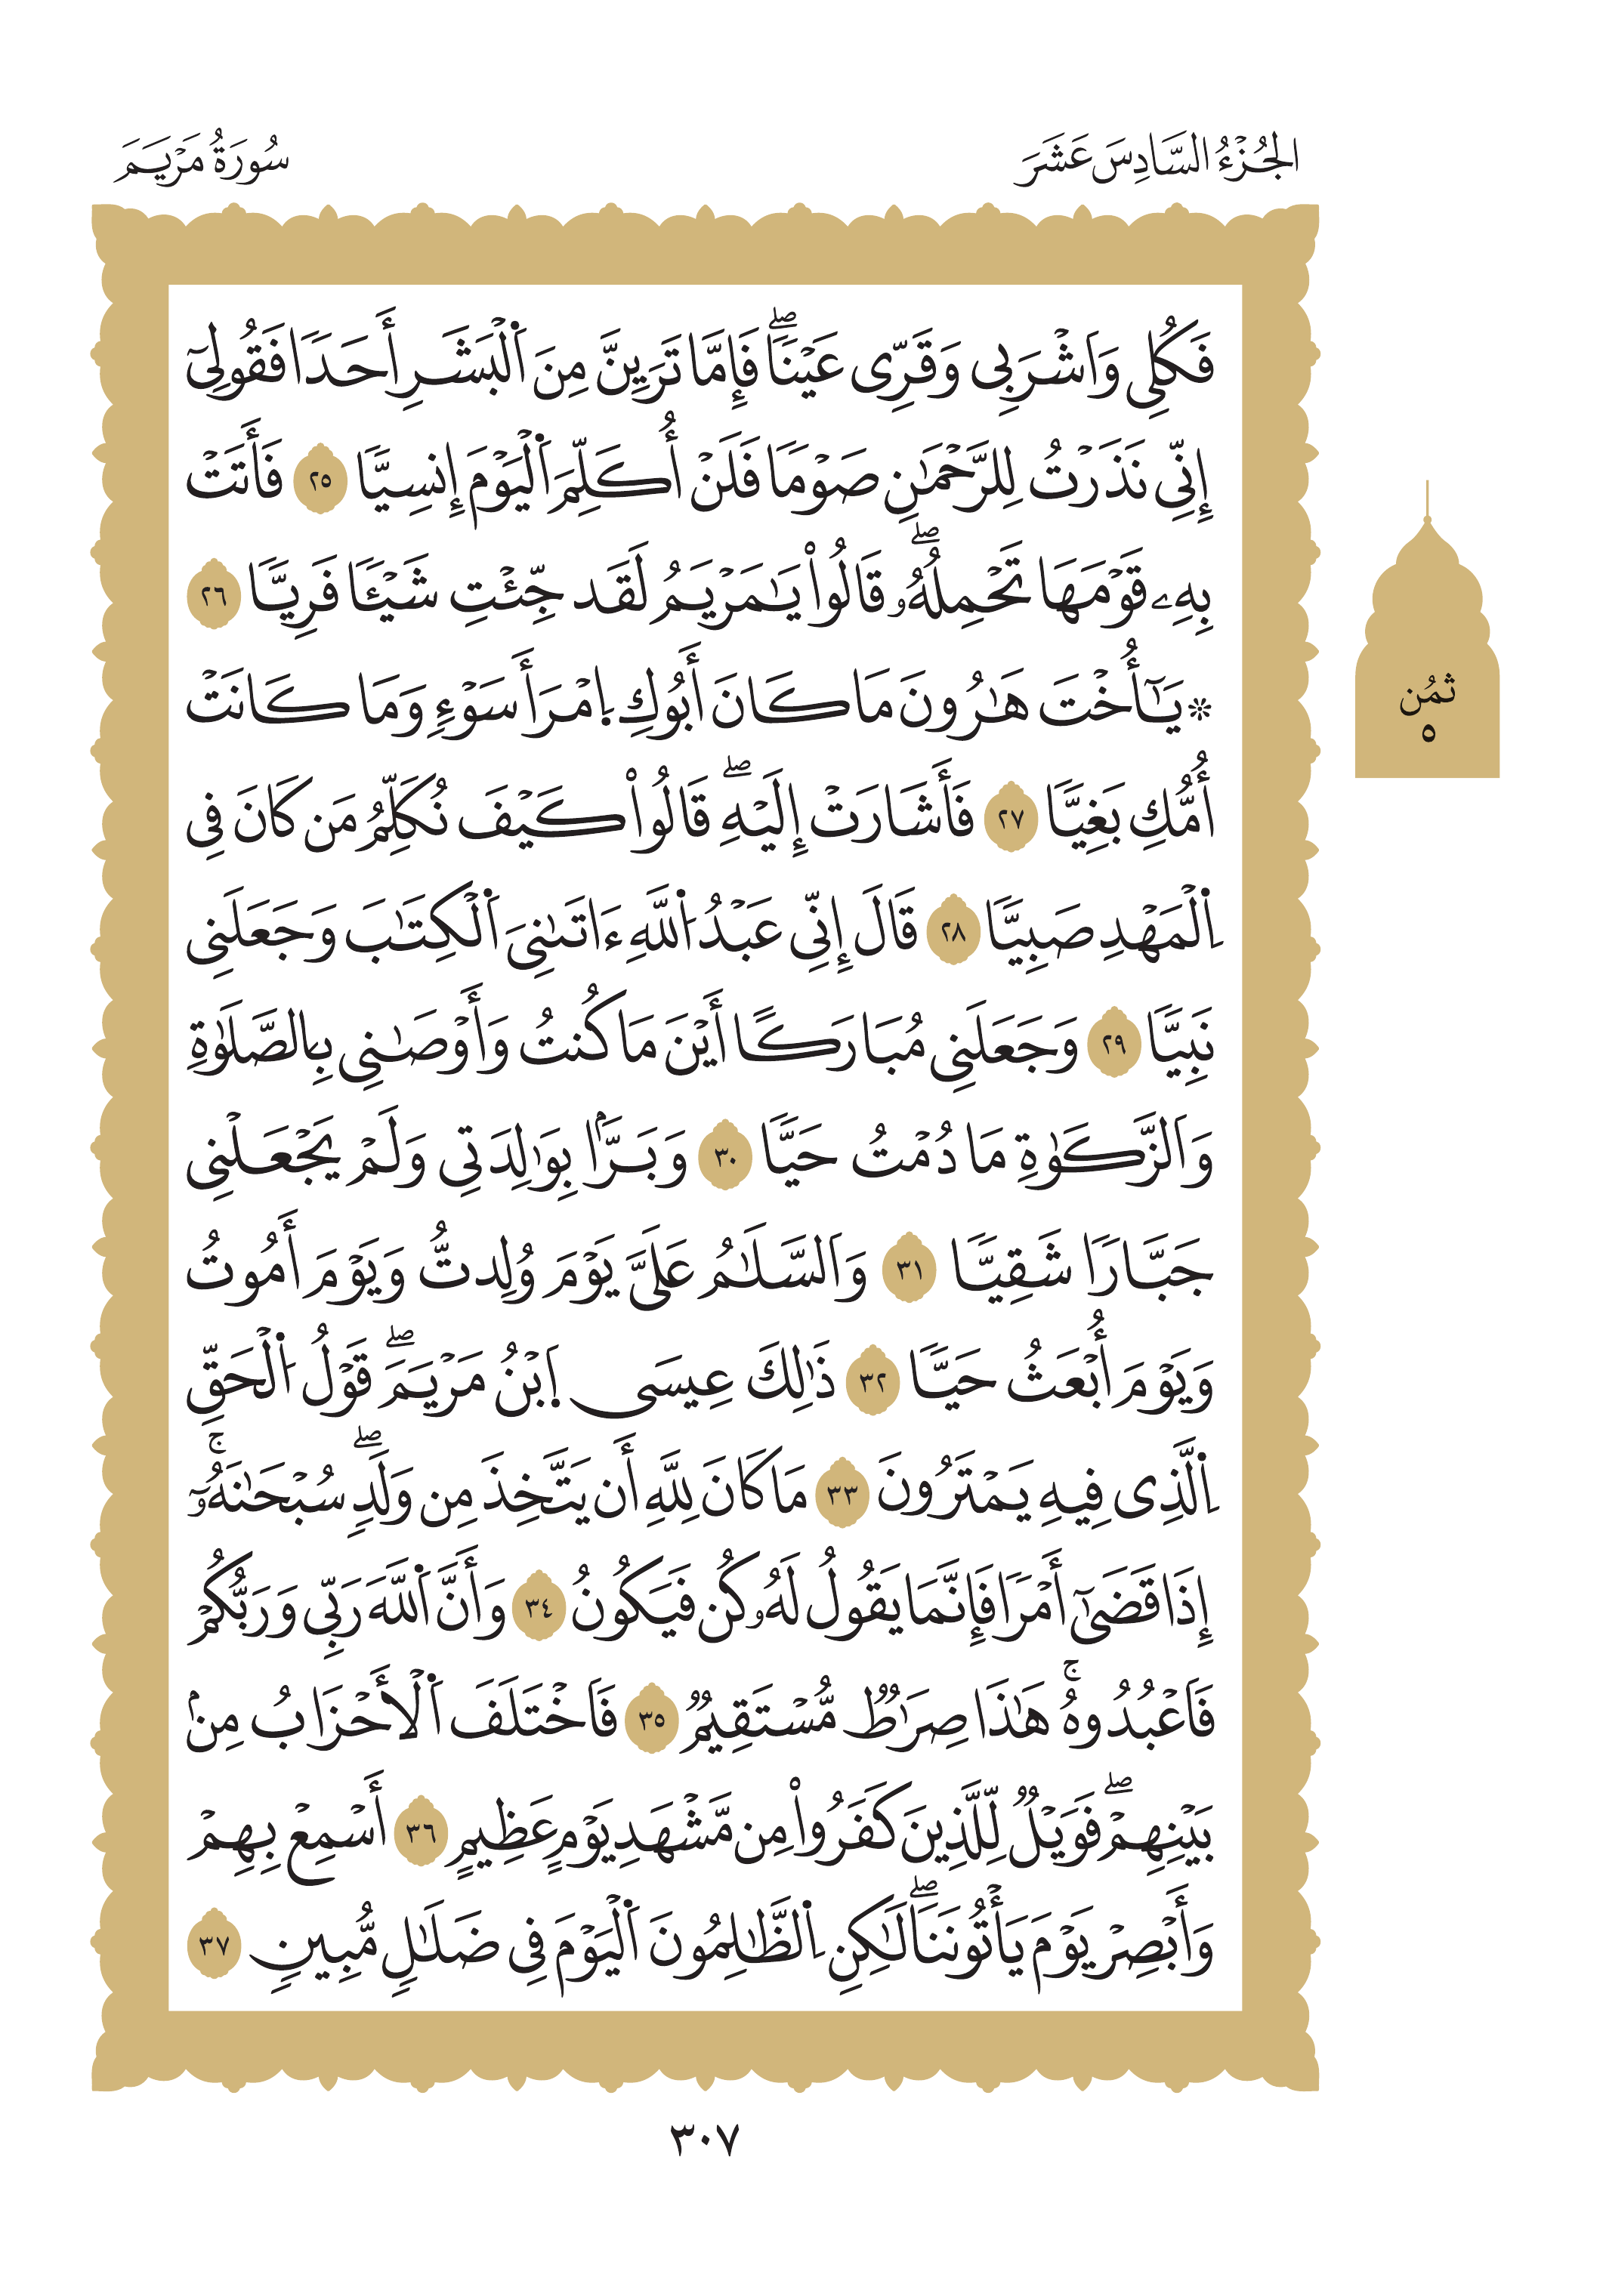 الجُزْءُ السَّادِسَ عَشَرَ
سُورَةُ مَرْيَمَ
فَكُلِي وَاَشْرَبِي وَقَرِّي عَيْنٗاۖ فَإِمَّا تَرَيِنَّ مِنَ اَ۬لْبَشَرِ أَحَدٗا فَقُولِيٓ
إِنِّي نَذَرْتُ لِلرَّحْمَٰنِ صَوْمٗا فَلَنْ أُكَلِّمَ اَ۬لْيَوْمَ إِنسِيّٗا ٢٥ فَأَتَتْ
بِهِۦ قَوْمَهَا تَحْمِلُهُۥۖ قَالُواْ يَٰمَرْيَمُ لَقَد جِّئْتِ شَيْـٔٗا فَرِيّٗا ٢٦
۞ يَٰٓأُخْتَ هَٰرُونَ مَا كَانَ أَبُوكِ اِ۪مْرَأَ سَوْءٖ وَمَا كَانَتْ
أُمُّكِ بَغِيّٗا ٢٧ فَأَشَارَتْ إِلَيْهِۖ قَالُواْ كَيْفَ نُكَلِّمُ مَن كَانَ فِي
اِ۬لْمَهْدِ صَبِيّٗا ٢٨ قَالَ إِنِّي عَبْدُ اَ۬للَّهِ ءَاتَىٰنِيَ اَ۬لْكِتَٰبَ وَجَعَلَنِي
نَبِيّٗا ٢٩ وَجَعَلَنِي مُبَارَكًا أَيْنَ مَا كُنتُ وَأَوْصَٰنِي بِالصَّلَوٰةِ
وَاَلزَّكَوٰةِ مَا دُمْتُ حَيّٗا ٣٠ وَبَرَّۢا بِوَٰلِدَتِي وَلَمْ يَجْعَلْنِي
جَبَّارٗا شَقِيّٗا ٣١ وَاَلسَّلَٰمُ عَلَيَّ يَوْمَ وُلِدتُّ وَيَوْمَ أَمُوتُ
وَيَوْمَ أُبْعَثُ حَيّٗا ٣٢ ذَٰلِكَ عِيسَى اِ۪بْنُ مَرْيَمَۖ قَوْلُ اُ۬لْحَقِّ
اِ۬لَّذِي فِيهِ يَمْتَرُونَ ٣٣ مَا كَانَ لِلَّهِ أَن يَتَّخِذَ مِن وَلَدٖۖ سُبْحَٰنَهُۥٓۚ
إِذَا قَضَىٰٓ أَمْرٗا فَإِنَّمَا يَقُولُ لَهُۥ كُن فَيَكُونُ ٣٤ وَأَنَّ اَ۬للَّهَ رَبِّي وَرَبُّكُمْ
فَاَعْبُدُوهُۚ هَٰذَا صِرَٰطٞ مُّسْتَقِيمٞ ٣٥ فَاَخْتَلَفَ اَ۬لْأَحْزَابُ مِنۢ
بَيْنِهِمْۖ فَوَيْلٞ لِّلَّذِينَ كَفَرُواْ مِن مَّشْهَدِ يَوْمٍ عَظِيمٍ ٣٦ أَسْمِعْ بِهِمْ
وَأَبْصِرْ يَوْمَ يَأْتُونَنَاۖ لَٰكِنِ اِ۬لظَّٰلِمُونَ اَ۬لْيَوْمَ فِي ضَلَٰلٖ مُّبِينٖ ٣٧
ثمُن
٥
٣٠٧